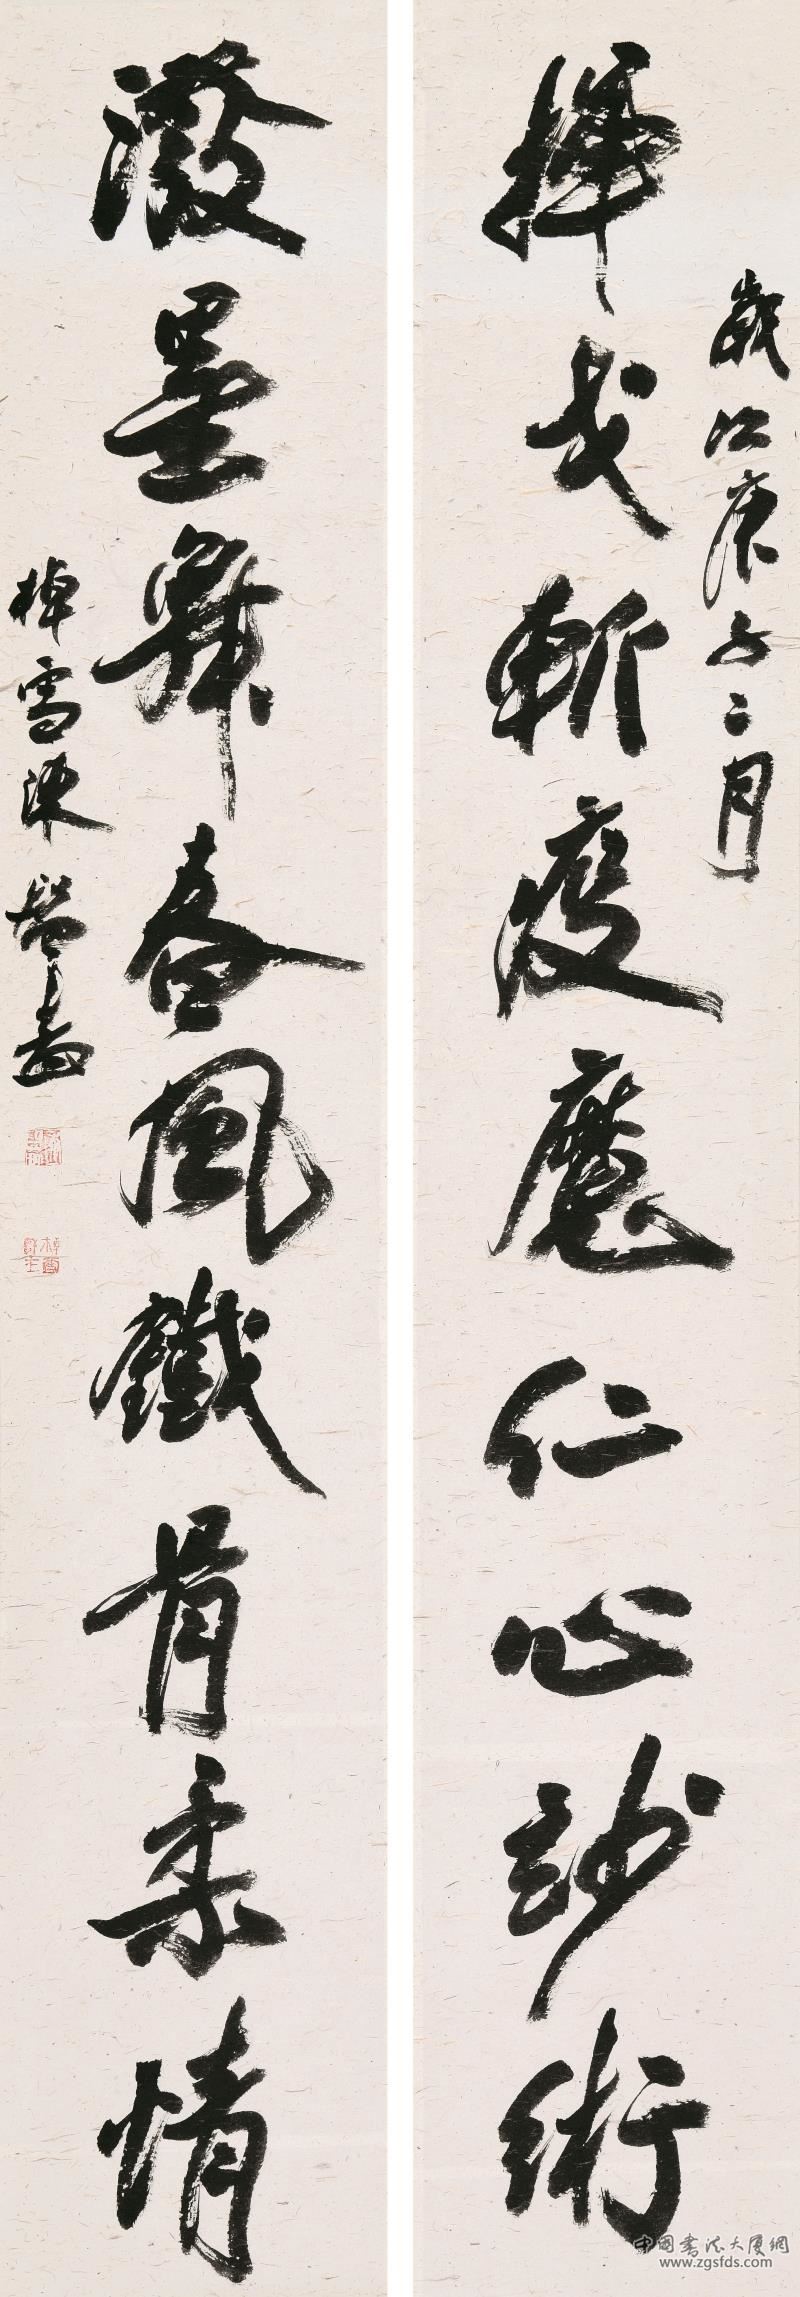 歲次庚子二月
揮戈斬疫魔仁心妙術
潑墨舞春風鐵骨柔情
棹雪 書
中國書法大厦網
www.zgsfds.com